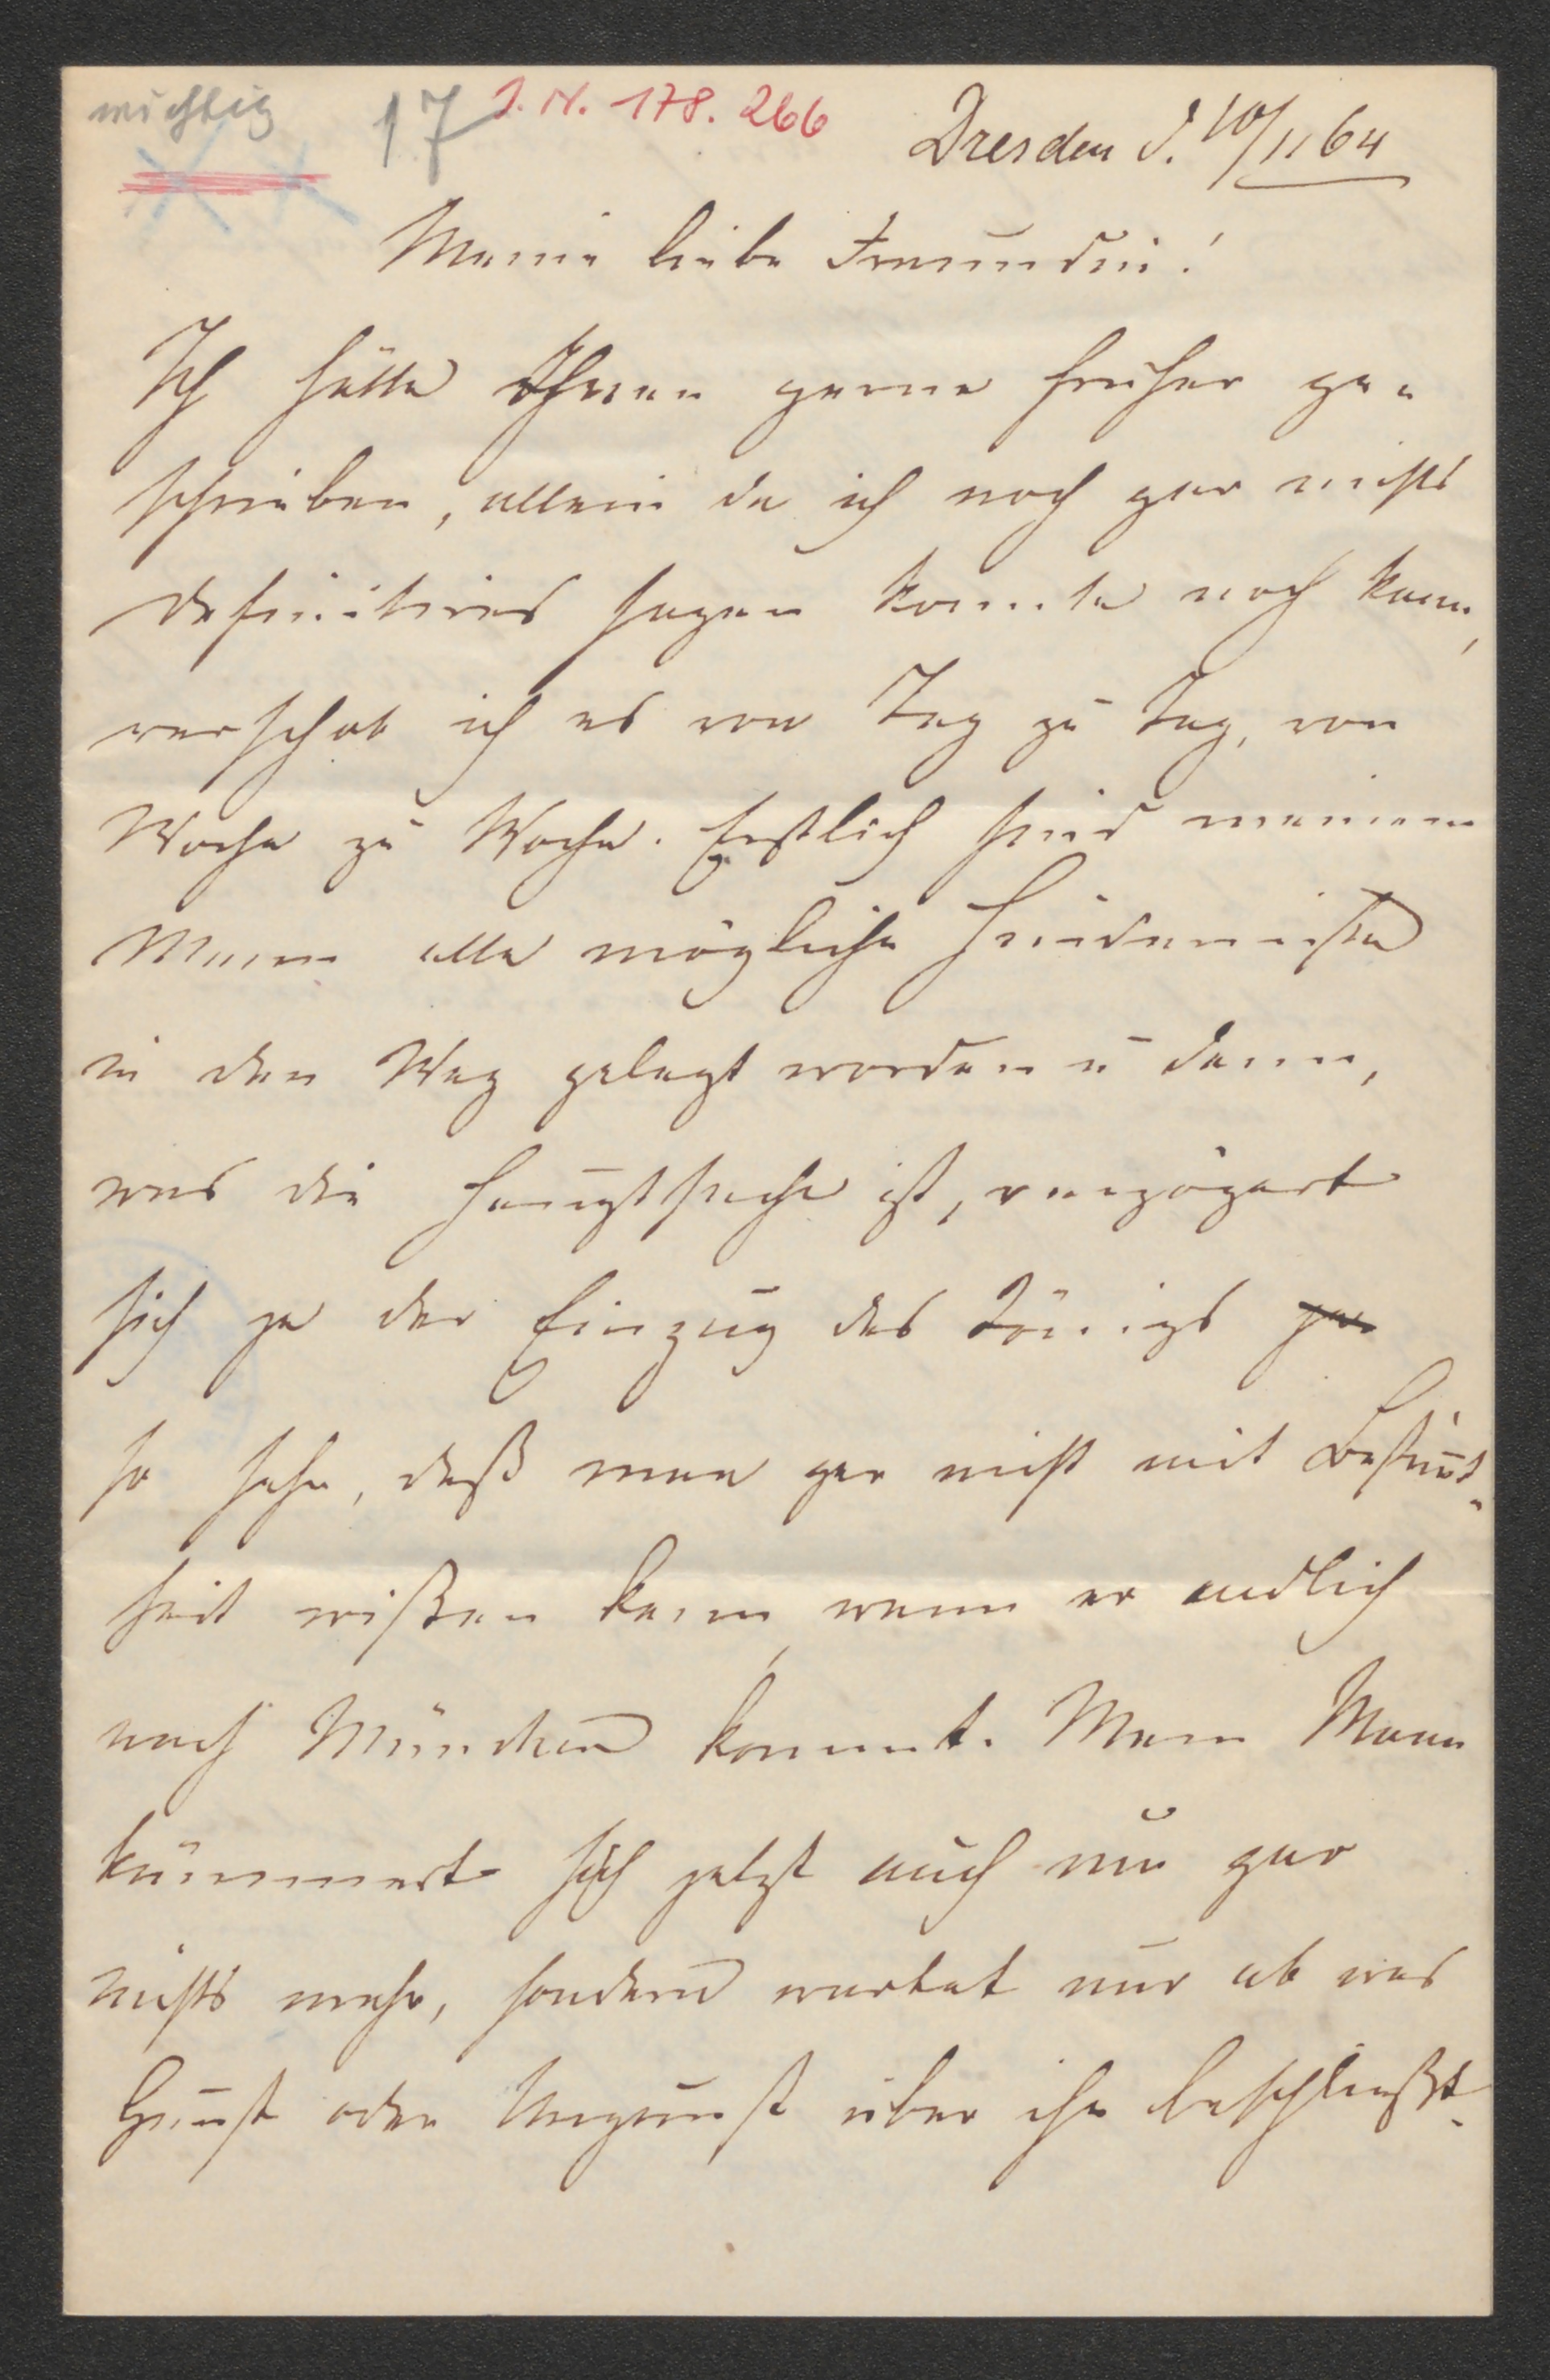 wichtig 17 I. N. 178. 266
Dresden d. 10/11 64
Meine liebe Freundin!
Ich hätte Ihnen gerne früher ge-
schrieben, allein da ich noch gar nichts
definitives sagen konnte noch kann,
verschob ich es von Tag zu Tag, von
Woche zu Woche. Erstlich sind meinem
Mann alle mögliche Hindernisse
in den Weg gelegt worden u dann,
was die Hauptsache ist, verzögert
sich ja der Einzug des Königs
so sehr, daß man gar nicht mit Bestimt-
heit wißen kann, wann er endlich
nach München kommt. Mein Mann
kümmert sich jetzt auch um gar
nichts mehr, sondern wartet nur ab was
Gunst oder Ungunst über ihn beschließt.